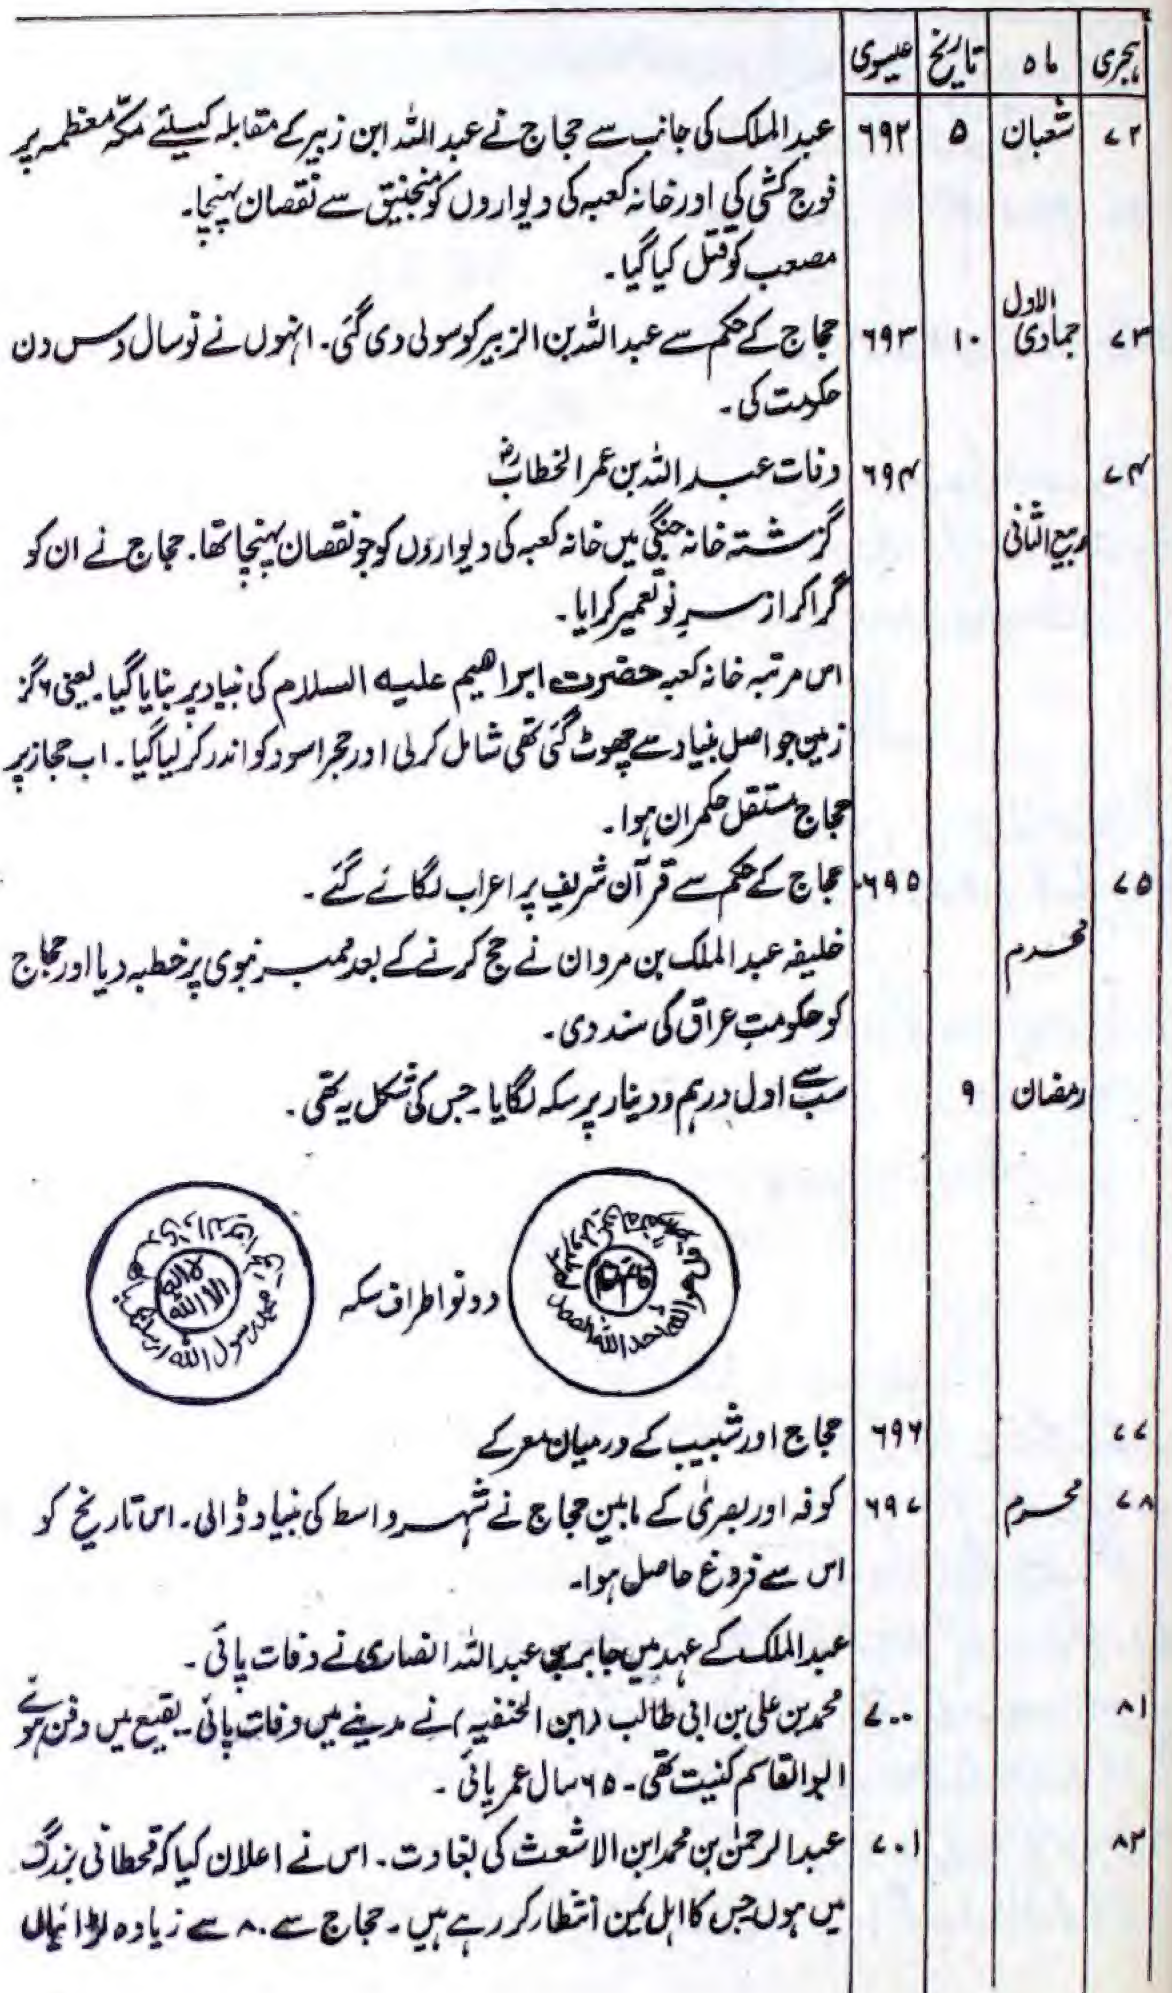 ہجری ماہ تاریخ عیسوی
۷۲ شعبان ۵ ۶۹۲ عبد الملک کی جانب سے حجاج نے عبد اللہ ابن زبیر کے مقابلہ کیلئے مکہ معظمہ پر
فوج کشی کی اور خانہ کعبہ کی دیواروں کو منجنیق سے نقصان پہنچا۔
مصعب کو قتل کیا گیا۔
۷۳ جمادی الاول ۱۰ ۶۹۳ حجاج کے حکم سے عبد اللہ بن الزبیر کو سولی دی گئی۔ انہوں نے نو سال دس دن
حکومت کی۔
۷۴ ۶۹۴ وفات عبد اللہ بن عمر الخطابؓ
ربیع الثانی گزشتہ خانہ جنگی میں خانہ کعبہ کی دیواروں کو جو نقصان پہنچا تھا۔ حجاج نے ان کو
گرا کر از سرِ نو تعمیر کرایا۔
اس مرتبہ خانہ کعبہ حضرت ابراھیم علیہ السلام کی بنیاد پر بنایا گیا۔ یعنی ۶ گز
زمین جو اصل بنیاد سے چھوٹ گئی تھی شامل کرلی اور حجر اسود کو اندر کر لیا گیا۔ اب حجاز پر
حجاج مستقل حکمران ہوا۔
۷۵ ۶۹۵ حجاج کے حکم سے قرآن شریف پر اعراب لگائے گئے۔
محرم خلیفہ عبد الملک بن مروان نے حج کرنے کے بعد ممبر نبوی پر خطبہ دیا اور حجاج
کو حکومتِ عراق کی سند دی۔
رمضان ۹ سب سے اول درہم و دینار پر سکہ لگایا۔ جس کی شکل یہ تھی۔
اللہ احد اللہ الصمد
دونو اطراف سکہ
لا الہ
الا اللہ
محمد رسول اللہ ارسلہ
۷۷ ۶۹۶ حجاج اور شبیب کے درمیان معرکے
۷۸ محرم ۶۹۷ کوفہ اور بصریٰ کے مابین حجاج نے شہر واسط کی بنیاد ڈالی۔ اس تاریخ کو
اس سے فروغ حاصل ہوا۔
عبد الملک کے عہد میں جابر بن عبد اللہ انصاری نے وفات پائی۔
۸۱ ۷۰۰ محمد بن علی بن ابی طالب (ابن الحنفیہ) نے مدینے میں وفات پائی۔ بقیع میں دفن ہوئے
ابوالقاسم کنیت تھی۔ ۶۵ سال عمر پائی۔
۸۲ ۷۰۱ عبد الرحمٰن بن محمد ابن الاشعث کی بغاوت۔ اس نے اعلان کیا کہ قحطانی بزرگ
میں ہوں جس کا اہل یمن انتظار کر رہے ہیں۔ حجاج سے ۸۰ سے زیادہ لڑائیاں